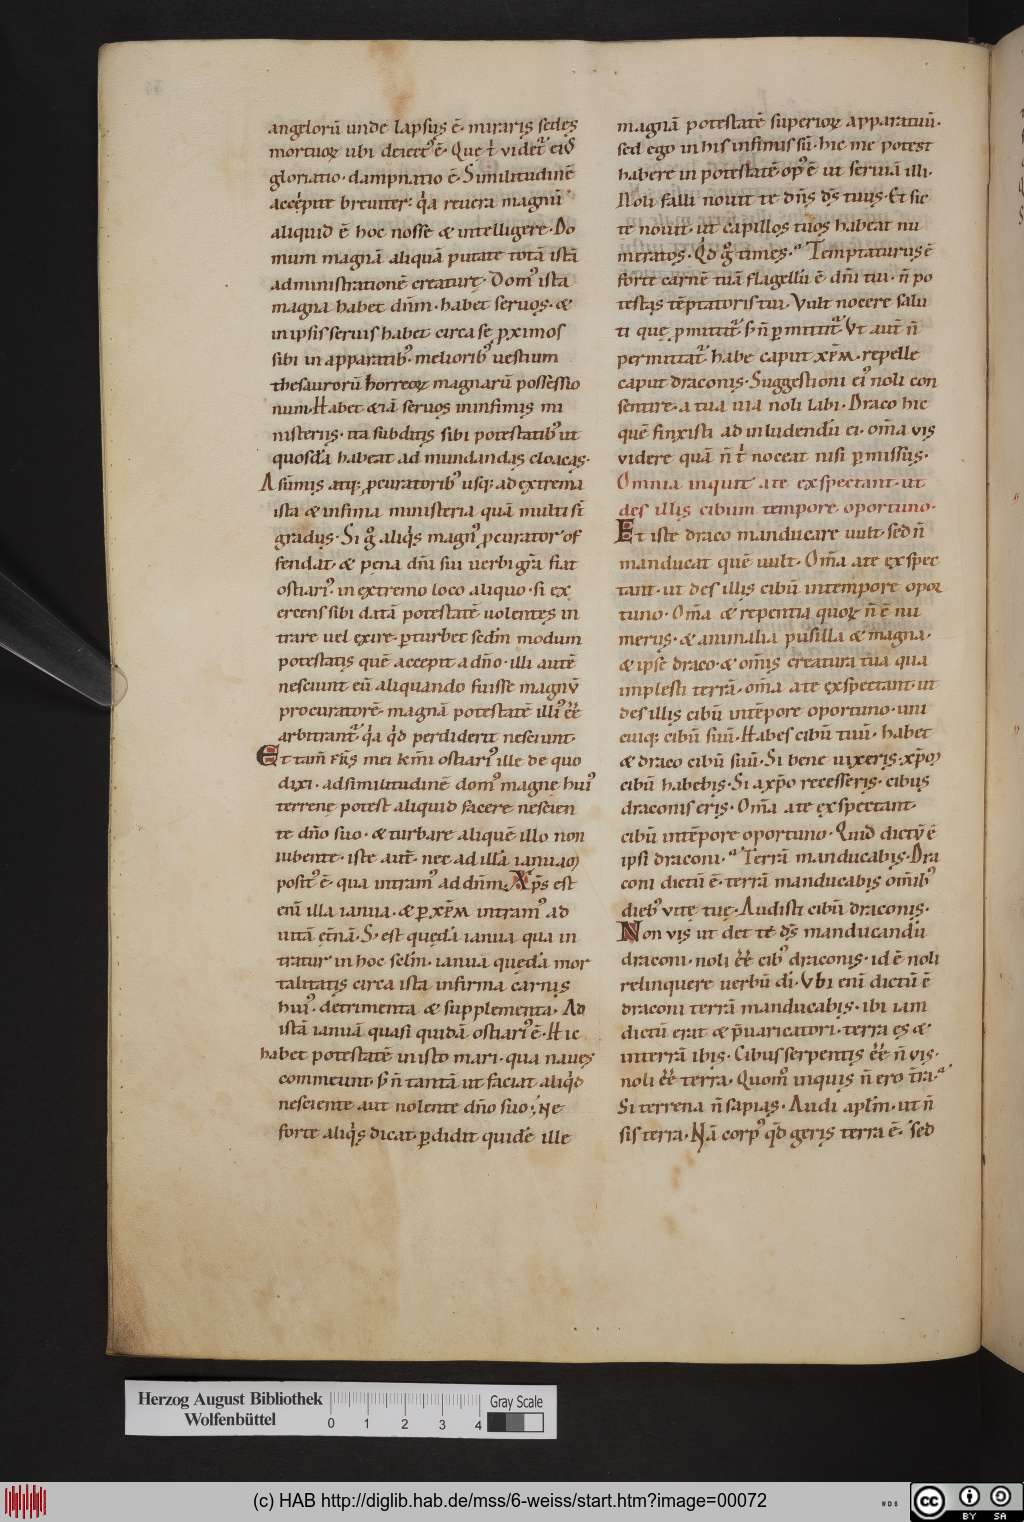 angelorū unde lapsus ē. miraris sedes
mortuoꝝ ubi deiectꝰ ē. Que t̄ videt᷑ eiꝰ
gloriatio. dampnatio ē. Similitudinē
accipite breviter. q̇a revera magnū
aliquid ē hoc nosse & intelligere. Do
mum magnā aliquā putate totā istā
administrationē creaturę. Domꝰ ista
magna habet dn̄m. habet servos. &
in ipsis servis habet circa se ꝓximos
sibi in apparatibꝰ melioribꝰ vestium
thesaurorū horreoꝝ magnarū possessio
num. Habet & iā servos in infimis mi
nisteriis. ita subditis sibi potestatibꝰ ut
quosdā habeat ad mundandas cloacas.
A sūmis atq; ꝓcuratoribꝰ usq; ad extrema
ista & infima ministeria quā multi st̄
gradus. Si g° aliq̇s magnꝰ ꝓcurator of
fendat. & pena dn̄i sui verbi gr̄a fiat
ostiariꝰ. in extremo loco aliquo. si ex
ercens sibi datā potestatē volentes in
trare vel exire. ꝑturbet sedm̄ modum
potestatis quē accepit a dn̄o. illi autē
nesciunt eū aliquando fuisse magnū
procuratorē. magnā potestatē illiꝰ eē̄
arbitrant᷑ q̇a q̇d perdiderit nesciunt.
Et tam̄ fr̄s mei km̄i ostiariꝰ ille de quo
dixi. ad similitudinē domꝰ magne huiꝰ
terrene potest aliquid facere nescien
te dn̄o suo. & turbare aliquē illo non
iubente. iste aut̄. nec ad illā ianuam
positꝰ ē. qua intramꝰ ad dn̄m. Xp̄s est
enī illa ianua. & ꝑ xp̄m intramꝰ ad
vitā et̄nā. S; est quędā ianua qua in
tratur in hoc sclm̄. ianua quędā mor
talitatis circa ista infirma carnis
huiꝰ. detrimenta & supplementa. Ad
istā ianuā quasi quidā ostiariꝰ ē. Hic
habet potestatē in isto mari. qua naves
commeunt. s; n̄ tantā ut faciat aliq̇d
nesciente aut nolente dn̄o suo; Ne
forte aliq̇s dicat. ꝑdidit quidē ille
magnā potestatē superioꝝ apparatuū.
sed ego in his infimis sū. hic me potest
habere in potestatē. opꝰ ē ut serviā illi.
Noli falli novit te dn̄s ds̄ tuus. Et sic
te novit. ut capillos tuos habeat nu
meratos. Qd g° times. Temptaturus ē
forte carnē tuā flagellū ē dn̄i tui. n̄ po
testas tēptatoris tui. Vult nocere salu
ti que ꝑmittit᷑ s; n̄ ꝑmittit᷑. Ut aut̄ n̄
permittat᷑ habe caput xp̄m. repelle
caput draconis. Suggestioni eiꝰ noli con
sentire. a tua via noli labi. Draco hic
quē finxisti ad inludendū ei. om̄a vis
videre quā n̄ t̄ noceat nisi ꝑmissus.
Omnia inquit a te exspectant. ut
des illis cibum tempore oportuno.
Et iste draco manducare vult. sed n̄
manducat quē vult. Om̄a a te exspec
tant. ut des illis cibū in tempore opor
tuno. Om̄a & repentia quoꝝ n̄ ē nu
merus. & animalia pusilla & magna.
& ipse draco. & om̄is creatura tua qua
implesti terrā. om̄a a te exspectant. ut
des illis cibū in tēpore oportuno. uni
cuiq; cibū suū. Habes cibū tuū. habet
& draco cibū suū. Si bene vixeris. xp̄m
cibū habebis. Si a xp̄o recesseris. cibus
draconis eris. Om̄a a te exspectant.
cibū in tēpore oportuno. Quid dictū ē
ipsi draconi. Terrā manducabis. Dra
coni dictū ē. terrā manducabis om̄ibꝰ
diebꝰ vite tue. Audisti cibū draconis.
Non vis ut det te ds̄ manducandū
draconi. noli eē̄ cibꝰ draconis. id ē noli
relinquere verbū di̅. Ubi enī dictū ē
draconi terrā manducabis. ibi iam
dictū erat & p̄varicatori. terra es &
in terrā ibis. Cibus serpentis eē̄ n̄ vis.
noli eē̄ terra. Quom° inquis n̄ ero t̄ra.
Si terrena n̄ sapias. Audi apl̄m. ut n̄
sis terra. Nā corpꝰ q̇d geris terra ē. Sed
Herzog August Bibliothek
Wolfenbüttel
0 1 2 3 4
Gray Scale
(c) HAB http://diglib.hab.de/mss/6-weiss/start.htm?image=00072
WDB
cc BY SA